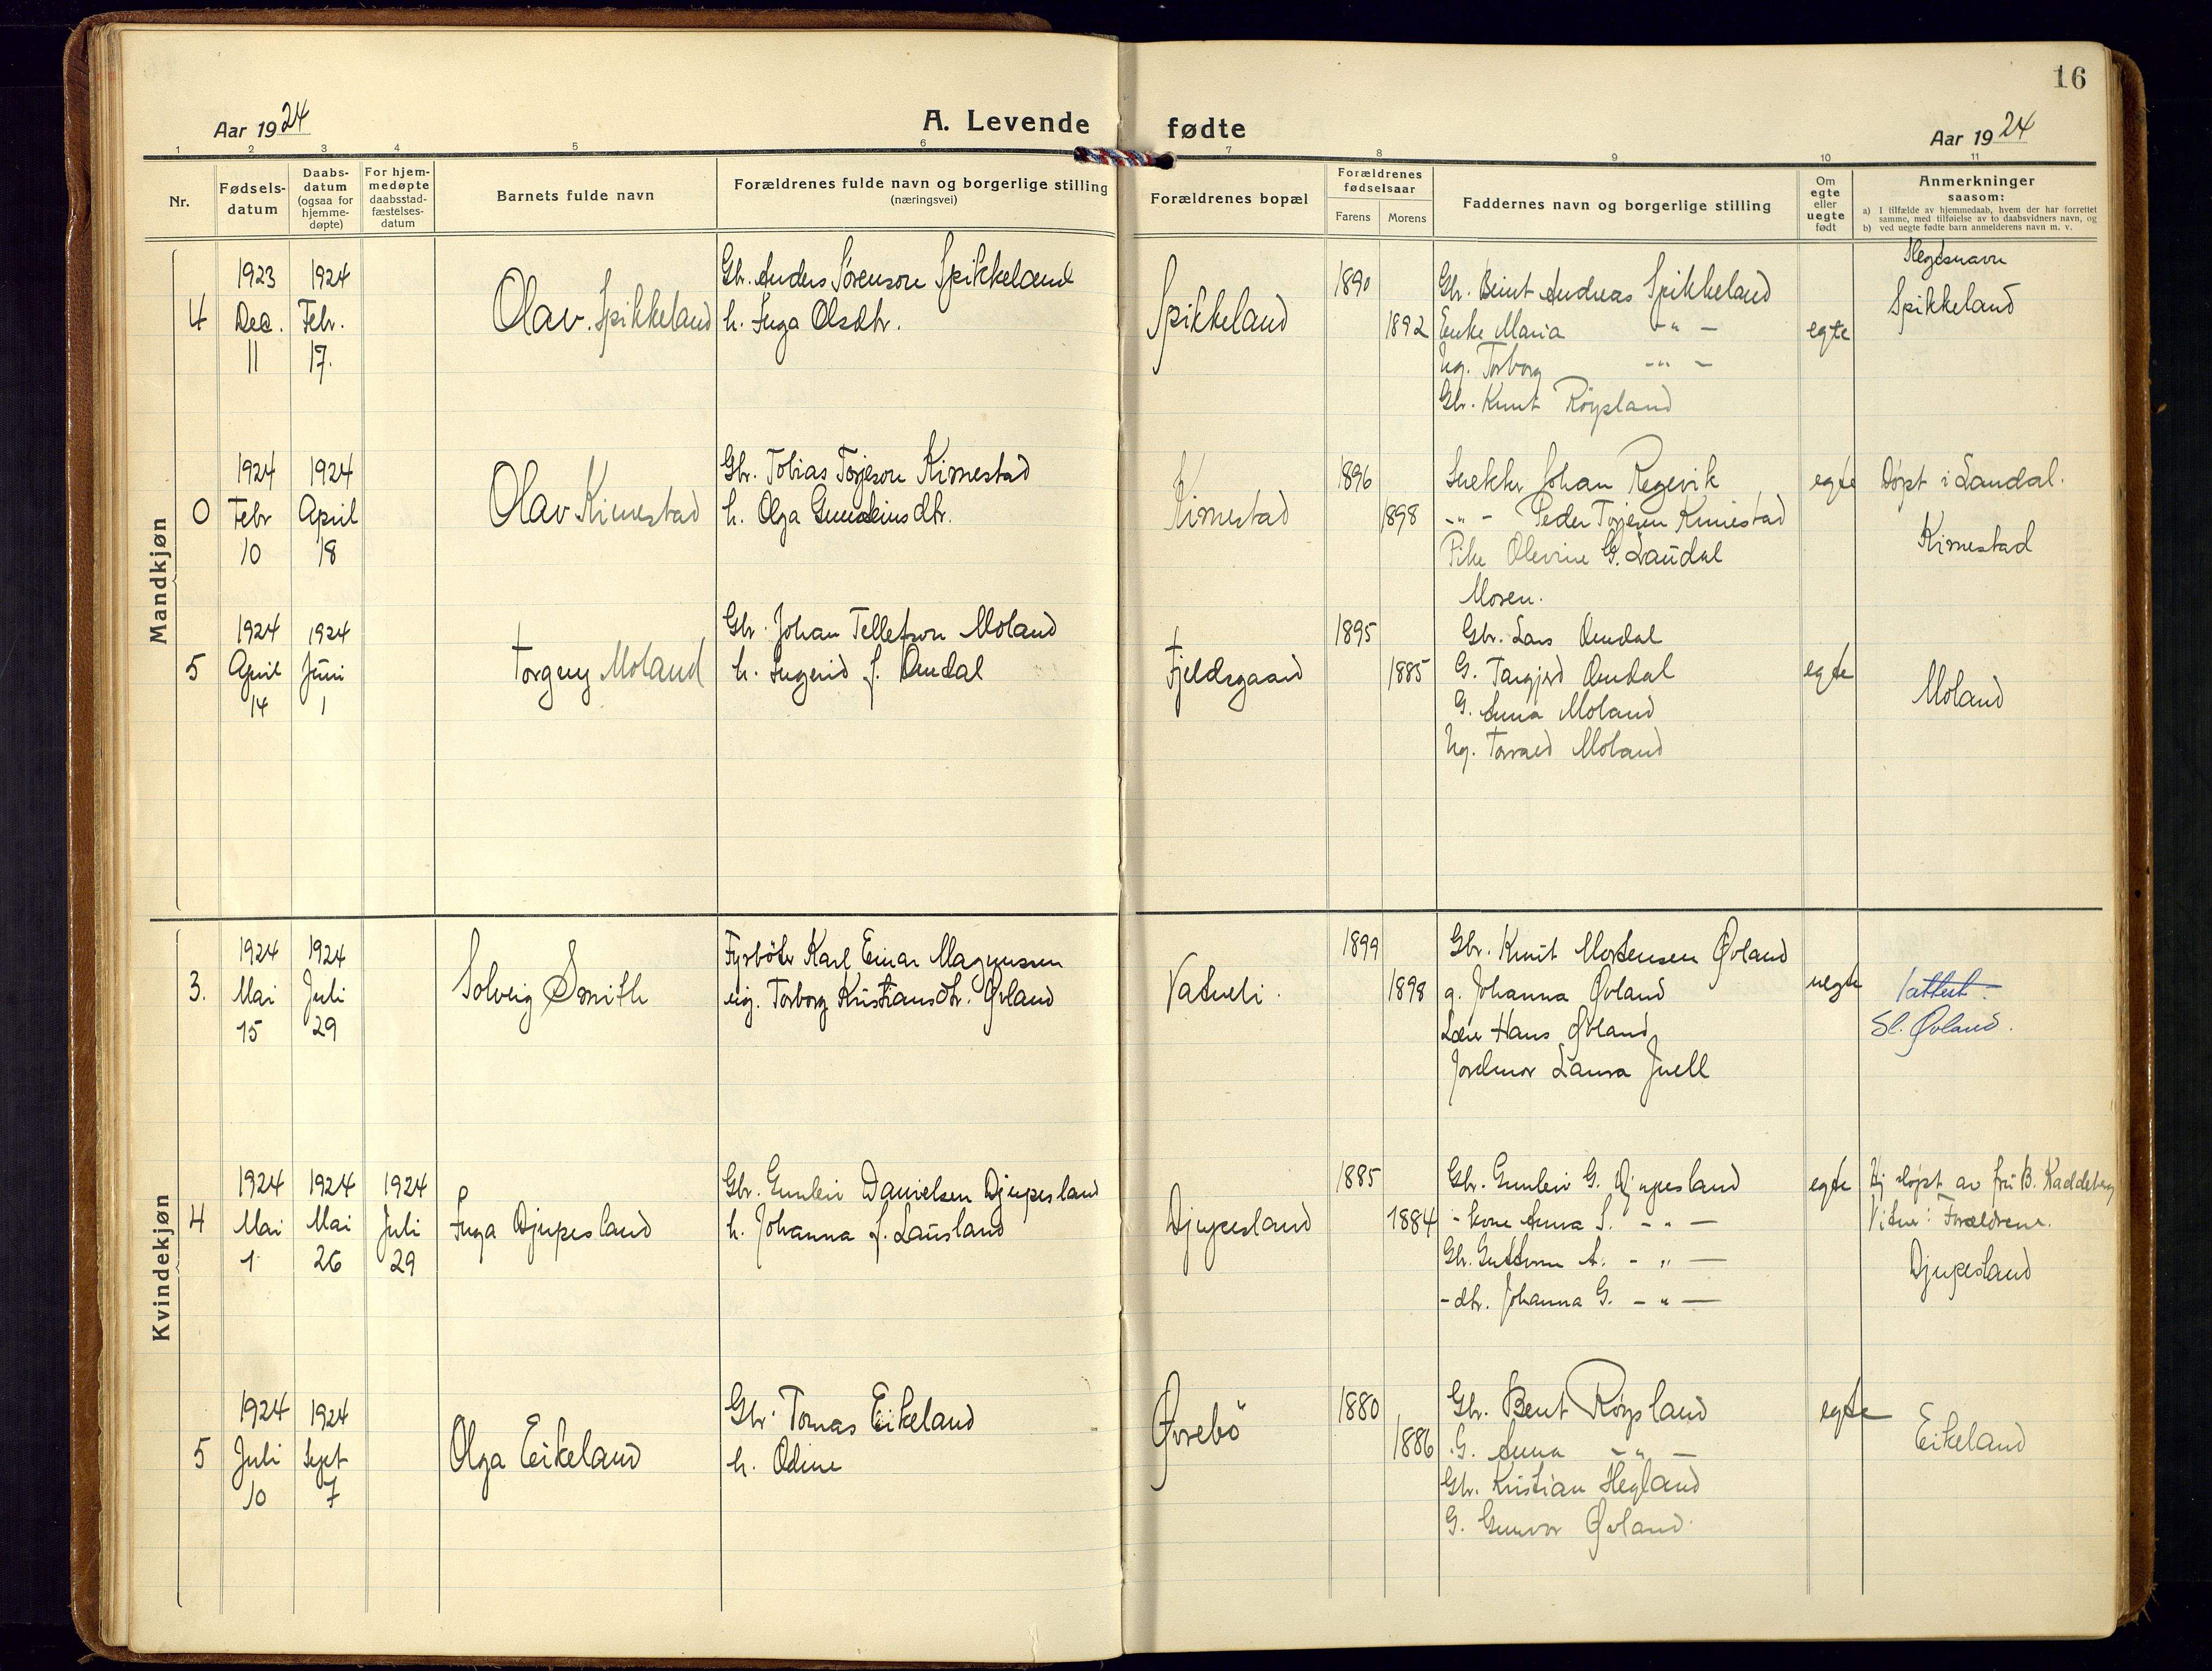 16
Aar 1924
A. Levende fødte
Aar 1924
1 2 3 4 5 6 7 8 9 10 11
Nr.
Fødsels-
datum
Daabs-
datum
(ogsaa for
hjemme-
døpte)
For hjem-
medøpte
daabsstad-
fæstelses-
datum
Barnets fulde navn
Forældrenes fulde navn og borgerlige stilling
(næringsvei)
Forældrenes bopæl
Forældrenes
fødselsaar
Farens Morens
Faddernes navn og borgerlige stilling
Om
egte
eller
uegte
født
Anmerkninger
saasom:
a) I tilfælde av hjemmedaab, hvem der har forrettet
samme, med tilføielse av to daabsvidners navn, og
b) ved uegte fødte barn anmelderens navn m. v.
Mandkjøn
4
1923
Dec.
11
1924
Febr.
17.
Olav Spikkeland
Gbr. Anders Sørenson Spikkeland
h. Inga Olsdtr.
Spikkeland
1890
1892
Gbr. Beint Andreas Spikkeland
Enke Maria -"-
Ug. Torborg -"-
Gbr. Knut Röysland
egte
Slegtsnavn
Spikkeland
0
1924
Febr
10
1924
April
18
Olav Kimestad
Gbr. Tobias Torjeson Kimestad
h. Olga
Kimestad
1896
1898
Snekker Johan Regevik
-"- Peder Torjesen Kimestad
Pike Olevine G. Laudal
Moren.
egte
Døpt i Laudal.
Kimestad
5
1924
April
14
1924
Juni
1
Torgny Moland
Gbr. Johan Tellefson Moland
h. Ingerid f. Omdal
Fjeldsgaard
1895
1885
Gbr. Lars Omdal
G. Targjerd Omdal
G. Anna Moland
Ug. Torvald Moland
egte
Moland
Kvindekjøn
3.
1924
Mai
15
1924
Juli
29
Solveig Smith
Fyrbøter Karl Einar Magnussen
ug. Torborg Kristiansdtr. Øvland
Vatneli.
1899
1898
Gbr. Knut Mortensen Øvland
g. Johanna Øvland
Lærer Hans Øvland
Jordmor Laura Juell
uegte
Sl. Øvland.
4
1924
Mai
1
1924
Mai
26
1924
Juli
29
Inga Djupesland
Gbr. Gunleiv Danielsen Djupesland
h. Johanna f. Lausland
Djupesland
1885
1884
Gbr. Gunleiv G. Djupesland
- kone Anna S. -"-
Gbr. Guttorm A. -"-
-dtr. Johanna G. -"-
egte
Hj døpt av fru B. Kaddeberg
Vitne: Forældrene.
Djupesland
5
1924
Juli
10
1924
Sept
7
Olga Eikeland
Gbr. Tomas Eikeland
h. Odine
Øvrebö
1880
1886
Gbr. Bent Röysland
G. Anna -"-
Gbr. Kristian Hegland
G. Gunvor Øvland.
egte
Eikeland